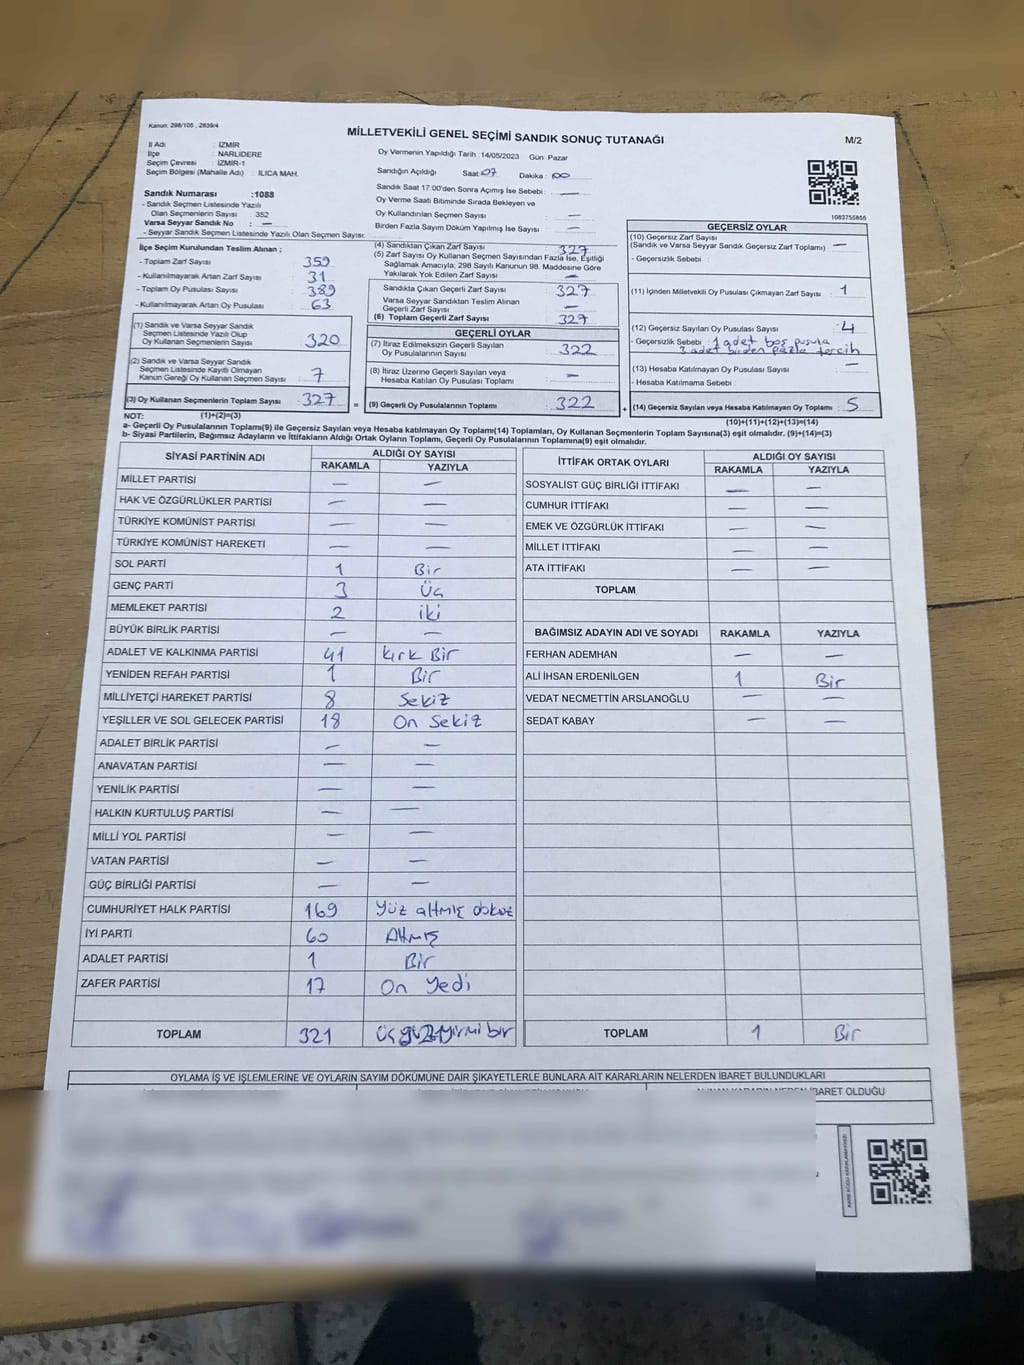 Kanun: 298/105 , 2839/4
MİLLETVEKİLİ GENEL SEÇİMİ SANDIK SONUÇ TUTANAĞI
M/2
İl Adı : İZMİR
İlçe : NARLIDERE
Seçim Çevresi : İZMİR-1
Seçim Bölgesi (Mahalle Adı) : ILICA MAH.
Sandık Numarası :1088
- Sandık Seçmen Listesinde Yazılı
Olan Seçmenlerin Sayısı : 352
Varsa Seyyar Sandık No : —
- Seyyar Sandık Seçmen Listesinde Yazılı Olan Seçmen Sayısı:
Oy Vermenin Yapıldığı Tarih :14/05/2023 Gün: Pazar
Sandığın Açıldığı Saat:07 Dakika : 00
Sandık Saat 17:00'den Sonra Açımış İse Sebebi : —
Oy Verme Saati Bitiminde Sırada Bekleyen ve
Oy Kullandırılan Seçmen Sayısı : —
Birden Fazla Sayım Döküm Yapılmış İse Sayısı : —
1083755855
İlçe Seçim Kurulundan Teslim Alınan ;
- Toplam Zarf Sayısı : 359
- Kullanılmayarak Artan Zarf Sayısı : 31
- Toplam Oy Pusulası Sayısı : 389
- Kullanılmayarak Artan Oy Pusulası : 63
(1) Sandık ve Varsa Seyyar Sandık
Seçmen Listesinde Yazılı Olup
Oy Kullanan Seçmenlerin Sayısı : 320
(2) Sandık ve Varsa Seyyar Sandık
Seçmen Listesinde Kaydı Olmayan
Kanun Gereği Oy Kullanan Seçmen Sayısı : 7
(3) Oy Kullanan Seçmenlerin Toplam Sayısı : 327
(4) Sandıktan Çıkan Zarf Sayısı : 327
(5) Zarf Sayısı Oy Kullanan Seçmen Sayısından Fazla İse, Eşitliği
Sağlamak Amacıyla; 298 Sayılı Kanunun 98. Maddesine Göre
Yakılarak Yok Edilen Zarf Sayısı : —
Sandıkta Çıkan Geçerli Zarf Sayısı : 327
Varsa Seyyar Sandıktan Teslim Alınan
Geçerli Zarf Sayısı : —
(6) Toplam Geçerli Zarf Sayısı : 327
GEÇERLİ OYLAR
(7) İtiraz Edilmeksizin Geçerli Sayılan
Oy Pusulalarının Sayısı : 322
(8) İtiraz Üzerine Geçerli Sayılan veya
Hesaba Katılan Oy Pusulası Toplamı : —
= (9) Geçerli Oy Pusulalarının Toplamı : 322
GEÇERSİZ OYLAR
(10) Geçersiz Zarf Sayısı
(Sandık ve Varsa Seyyar Sandık Geçersiz Zarf Toplamı) : —
- Geçersizlik Sebebi :
(11) İçinden Milletvekili Oy Pusulası Çıkmayan Zarf Sayısı : 1
(12) Geçersiz Sayılan Oy Pusulası Sayısı : 4
- Geçersizlik Sebebi : 1 adet boş pusula
3 adet birden fazla tercih
(13) Hesaba Katılmayan Oy Pusulası Sayısı : —
- Hesaba Katılmama Sebebi :
+ (14) Geçersiz Sayılan veya Hesaba Katılmayan Oy Toplamı : 5
NOT: (1)+(2)=(3)
(10)+(11)+(12)+(13)=(14)
a- Geçerli Oy Pusulalarının Toplamı(9) ile Geçersiz Sayılan veya Hesaba katılmayan Oy Toplamı(14) Toplamları, Oy Kullanan Seçmenlerin Toplam Sayısına(3) eşit olmalıdır. (9)+(14)=(3)
b- Siyasi Partilerin, Bağımsız Adayların ve İttifakların Aldığı Ortak Oyların Toplamı, Geçerli Oy Pusulalarının Toplamına(9) eşit olmalıdır.
SİYASİ PARTİNİN ADI ALDIĞI OY SAYISI
RAKAMLA YAZIYLA
MİLLET PARTİSİ — —
HAK VE ÖZGÜRLÜKLER PARTİSİ — —
TÜRKİYE KOMÜNİST PARTİSİ — —
TÜRKİYE KOMÜNİST HAREKETİ — —
SOL PARTİ 1 Bir
GENÇ PARTİ 3 Üç
MEMLEKET PARTİSİ 2 iki
BÜYÜK BİRLİK PARTİSİ — —
ADALET VE KALKINMA PARTİSİ 41 Kırk Bir
YENİDEN REFAH PARTİSİ 1 Bir
MİLLİYETÇİ HAREKET PARTİSİ 8 Sekiz
YEŞİLLER VE SOL GELECEK PARTİSİ 18 On Sekiz
ADALET BİRLİK PARTİSİ — —
ANAVATAN PARTİSİ — —
YENİLİK PARTİSİ — —
HALKIN KURTULUŞ PARTİSİ — —
MİLLİ YOL PARTİSİ — —
VATAN PARTİSİ — —
GÜÇ BİRLİĞİ PARTİSİ — —
CUMHURİYET HALK PARTİSİ 169 Yüz altmış dokuz
İYİ PARTİ 60 Altmış
ADALET PARTİSİ 1 Bir
ZAFER PARTİSİ 17 On Yedi
TOPLAM 321 Üç yüz yirmi bir
İTTİFAK ORTAK OYLARI ALDIĞI OY SAYISI
RAKAMLA YAZIYLA
SOSYALİST GÜÇ BİRLİĞİ İTTİFAKI — —
CUMHUR İTTİFAKI — —
EMEK VE ÖZGÜRLÜK İTTİFAKI — —
MİLLET İTTİFAKI — —
ATA İTTİFAKI — —
TOPLAM
BAĞIMSIZ ADAYIN ADI VE SOYADI RAKAMLA YAZIYLA
FERHAN ADEMHAN — —
ALİ İHSAN ERDENİLGEN 1 Bir
VEDAT NECMETTİN ARSLANOĞLU — —
SEDAT KABAY — —
TOPLAM 1 Bir
OYLAMA İŞ VE İŞLEMLERİNE VE OYLARIN SAYIM DÖKÜMÜNE DAİR ŞİKAYETLERLE BUNLARA AİT KARARLARIN NELERDEN İBARET BULUNDUKLARI
İBARET OLDUĞU